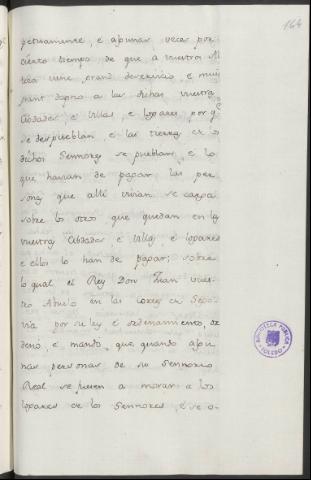 164
petuamente, e algunas veces por
cierto tiempo de que a vuestra Al
teza viene grand deservicio e mui
grant dapno a las dichas vuestras
Cibdades, e Villas, e Logares, porq̃
se despueblan, e las tierras de los
dichos Sennores se pueblan, e lo
que havian de pagar las per
sonas que alli vivian se carga
sobre los otros que quedan en las
vuestras Cibdades e Villas e Logares
e ellos lo han de pagar; sobre
lo qual el Rey Don Juan vues-
tro Abuelo en las Cortes de Sego
via por su ley e ordenamiento, or
denó, e mandó, que quando algu
nas personas de su Sennorio
Real se fuesen a morar a los
logares de los Sennores, e se o-
BIBLIOTECA PUBLICA
TOLEDO